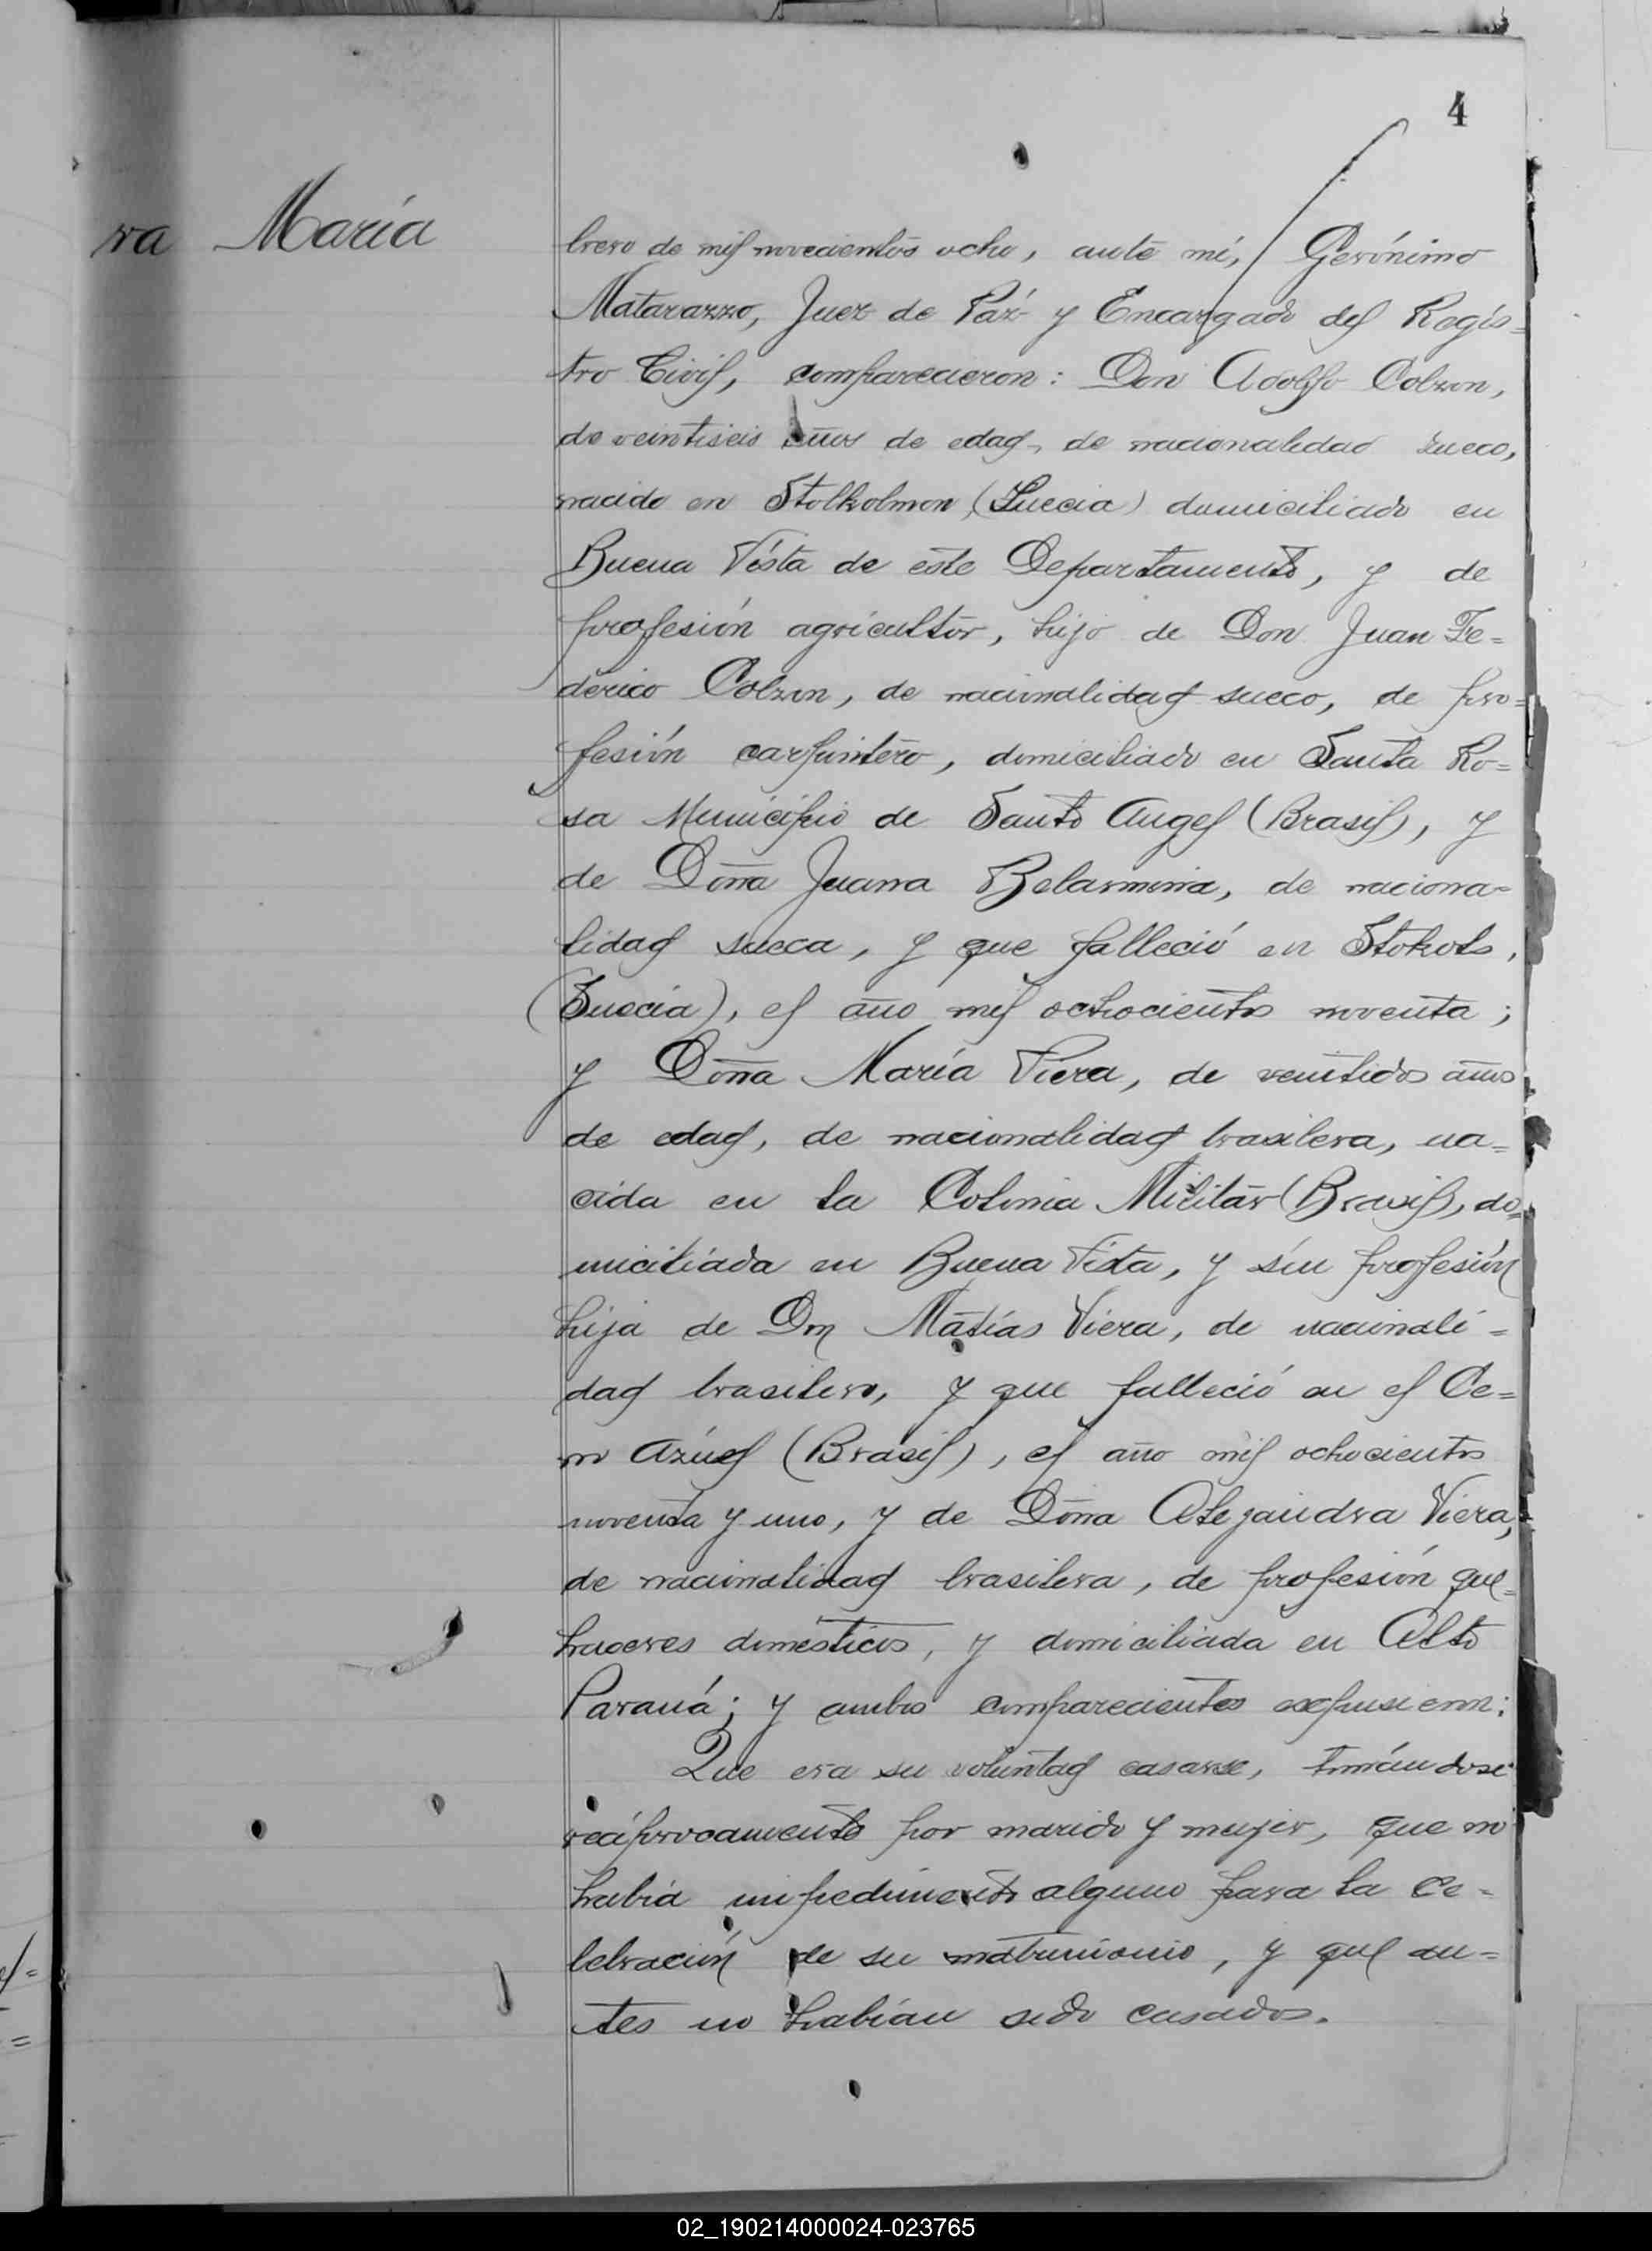 4
ra María
brero de mil novecientos ocho, ante mí, Gerónimo
Matarazzo, Juez de Páz y Encargado del Regis=
tro Civil, comparecieron: Don Adolfo Colzon,
de veintiseis años de edad, de nacionalidad sueco,
nacido en Stolkolmon, (Suecia) domiciliado en
Buena Vista de este Departamento, y de
profesión agricultor, hijo de Don Juan Fe=
derico Colzon, de nacionalidad sueco, de pro=
fesión carpintero, domiciliado en Santa Ro=
sa Municipio de Santo Angel (Brasil), y
de Doña Juana Belarmina, de naciona=
lidad sueca, y que falleció en Stokols,
(Suecia), el año mil ochocientos noventa;
y Doña María Viera, de veintidos años
de edad, de nacionalidad brasilera, na=
cida en la Colonia Militar (Brasil), do=
miciliada en Buena Vista, y sin profesión
hija de Don Matías Viera, de nacionali=
dad brasilero, y que falleció en el Ce=
rro Azúel (Brasil), el año mil ochocientos
noventa y uno, y de Doña Alejandra Viera,
de nacionalidad brasilera, de profesión que=
haceres domésticos, y domiciliada en Alto
Paraná; y ambos comparecientes expusieron:
Que era su voluntad casarse, tomándose
recíprocamente por marido y mujer, que no
había impedimento alguno para la ce=
lebración de su matrimonio, y que an=
tes no habían sido casados.
02_190214000024-023765